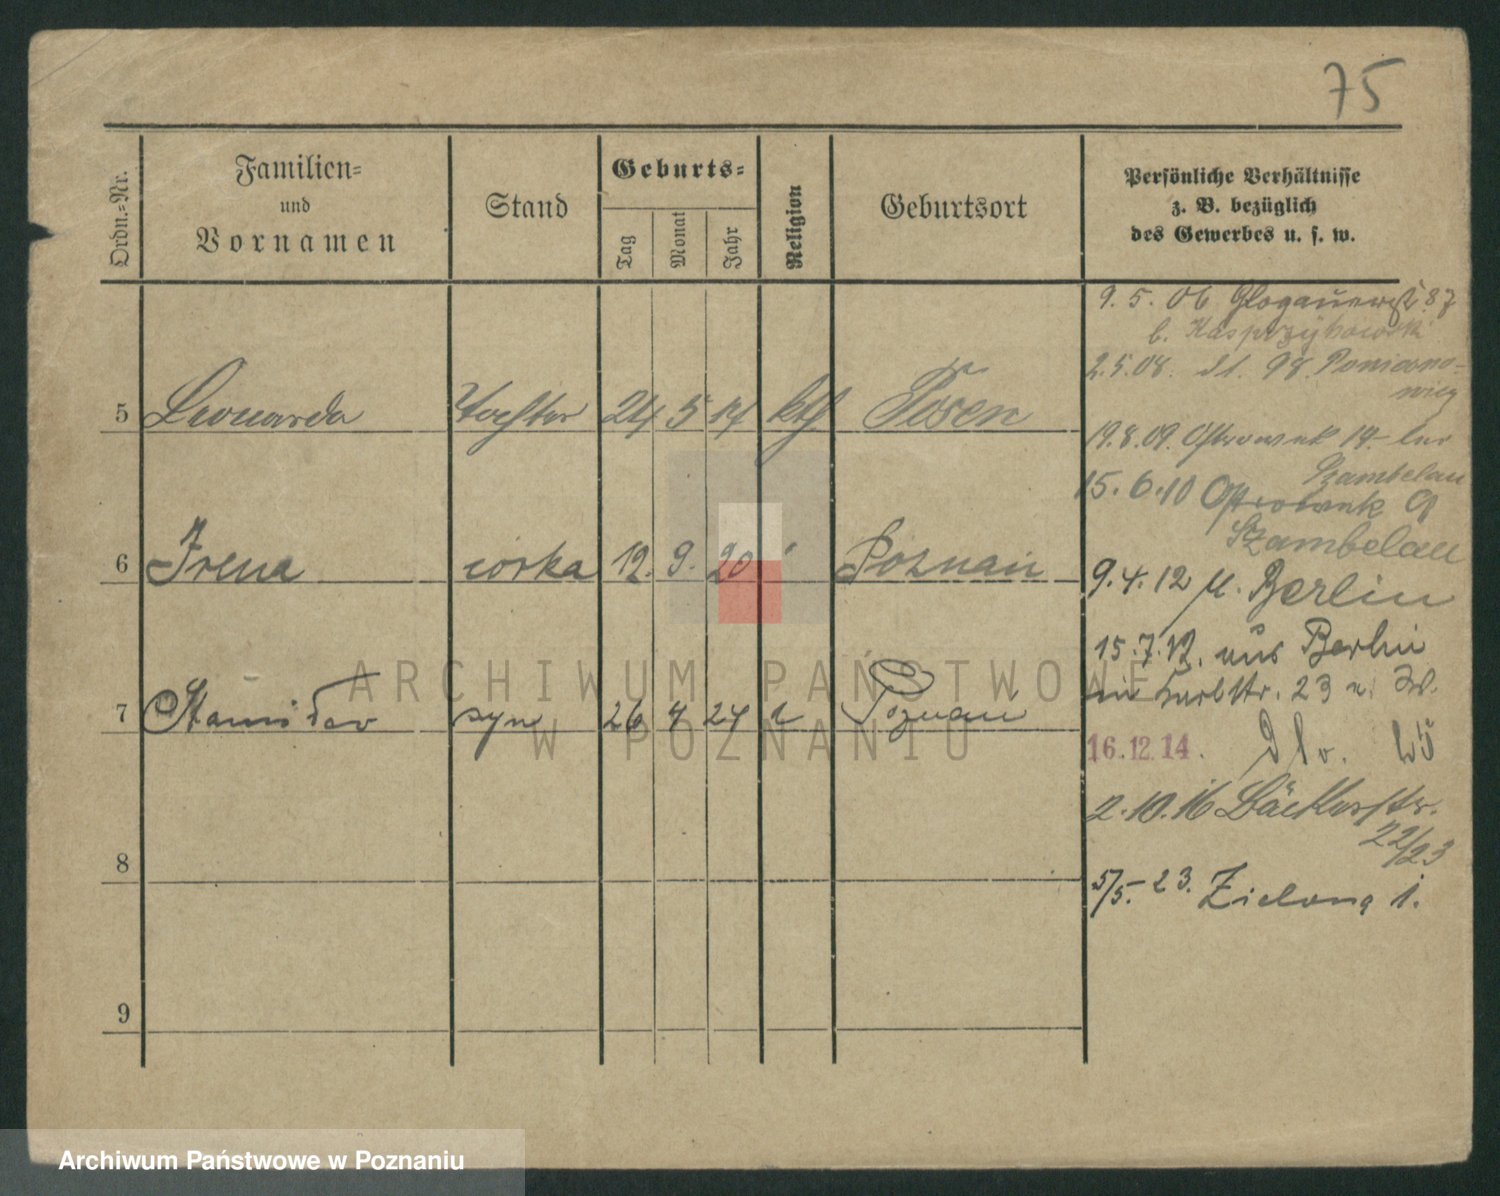 75
Ordn.=Nr.
Familien=
und
Vornamen
Stand
Geburts=
Tag
Monat
Jahr
Religion
Geburtsort
Persönliche Verhältnisse
z. B. bezüglich
des Gewerbes u. s. w.
5 Leonarda Tochter 24 5 14 kth Posen
6 Irena córka 12. 9. 20 Poznań
7 Stanisław syn 26 4 24 Poznań
8
9
9. 5. 06 Glogauerstr. 87
b. Kasprzykowski
2.5.08. 98. Poniano-
19.8.09. Ostrowek 14
Szambelan
15.6.10 Ostrowek 9
Szambelan
9.4.12 Berlin
15.7.12. aus Berlin
23
16.12.14.
2.10.16 Bäckerstr.
22/23
5/5. 23. Zielona 1.
ARCHIWUM PAŃSTWOWE
W POZNANIU
Archiwum Państwowe w Poznaniu